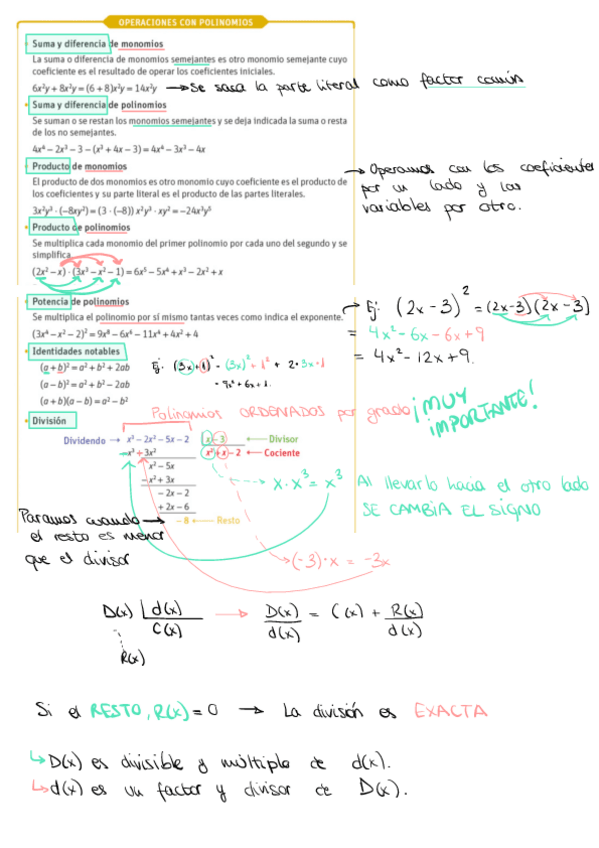 OPERACIONES CON POLINOMIOS
Suma y diferencia de monomios
La suma o diferencia de monomios semejantes es otro monomio semejante cuyo
coeficiente es el resultado de operar los coeficientes iniciales.
6x²y + 8x²y = (6 + 8)x²y = 14x²y → Se saca la parte literal como factor común
Suma y diferencia de polinomios
Se suman o se restan los monomios semejantes y se deja indicada la suma o resta
de los no semejantes.
4x⁴ − 2x³ − 3 − (x³ + 4x − 3) = 4x⁴ − 3x³ − 4x
Producto de monomios
El producto de dos monomios es otro monomio cuyo coeficiente es el producto de
los coeficientes y su parte literal es el producto de las partes literales.
3x²y³ · (−8xy²) = (3 · (−8)) x²y³ · xy² = −24x³y⁵
→ Operamos con los coeficientes
por un lado y las
variables por otro.
Producto de polinomios
Se multiplica cada monomio del primer polinomio por cada uno del segundo y se
simplifica.
(2x² − x) · (3x³ − x² − 1) = 6x⁵ − 5x⁴ + x³ − 2x² + x
Potencia de polinomios
Se multiplica el polinomio por sí mismo tantas veces como indica el exponente.
(3x⁴ − x² − 2)² = 9x⁸ − 6x⁶ − 11x⁴ + 4x² + 4
→ Ej: (2x − 3)² = (2x−3)(2x − 3)
= 4x² − 6x − 6x + 9
= 4x² − 12x + 9.
Identidades notables
(a + b)² = a² + b² + 2ab
(a − b)² = a² + b² − 2ab
(a + b)(a − b) = a² − b²
Ej: (3x+1)² = (3x)² + 1² + 2·3x·1
= 9x² + 6x + 1.
Polinomios ORDENADOS por grado
¡MUY
IMPORTANTE!
División
Dividendo → x³ − 2x² − 5x − 2 x − 3 ← Divisor
−x³ + 3x² x² + x − 2 ← Cociente
x² − 5x
− x² + 3x
− 2x − 2
+ 2x − 6
− 8 ← Resto
x · x³ = x³
Al llevarlo hacia el otro lado
SE CAMBIA EL SIGNO
Paramos cuando →
el resto es menor
que el divisor
→ (−3)·x = −3x
D(x) d(x) → D(x)/d(x) = C(x) + R(x)/d(x)
C(x)
R(x)
Si el RESTO, R(x) = 0 → La división es EXACTA
↳ D(x) es divisible y múltiplo de d(x).
↳ d(x) es un factor y divisor de D(x).